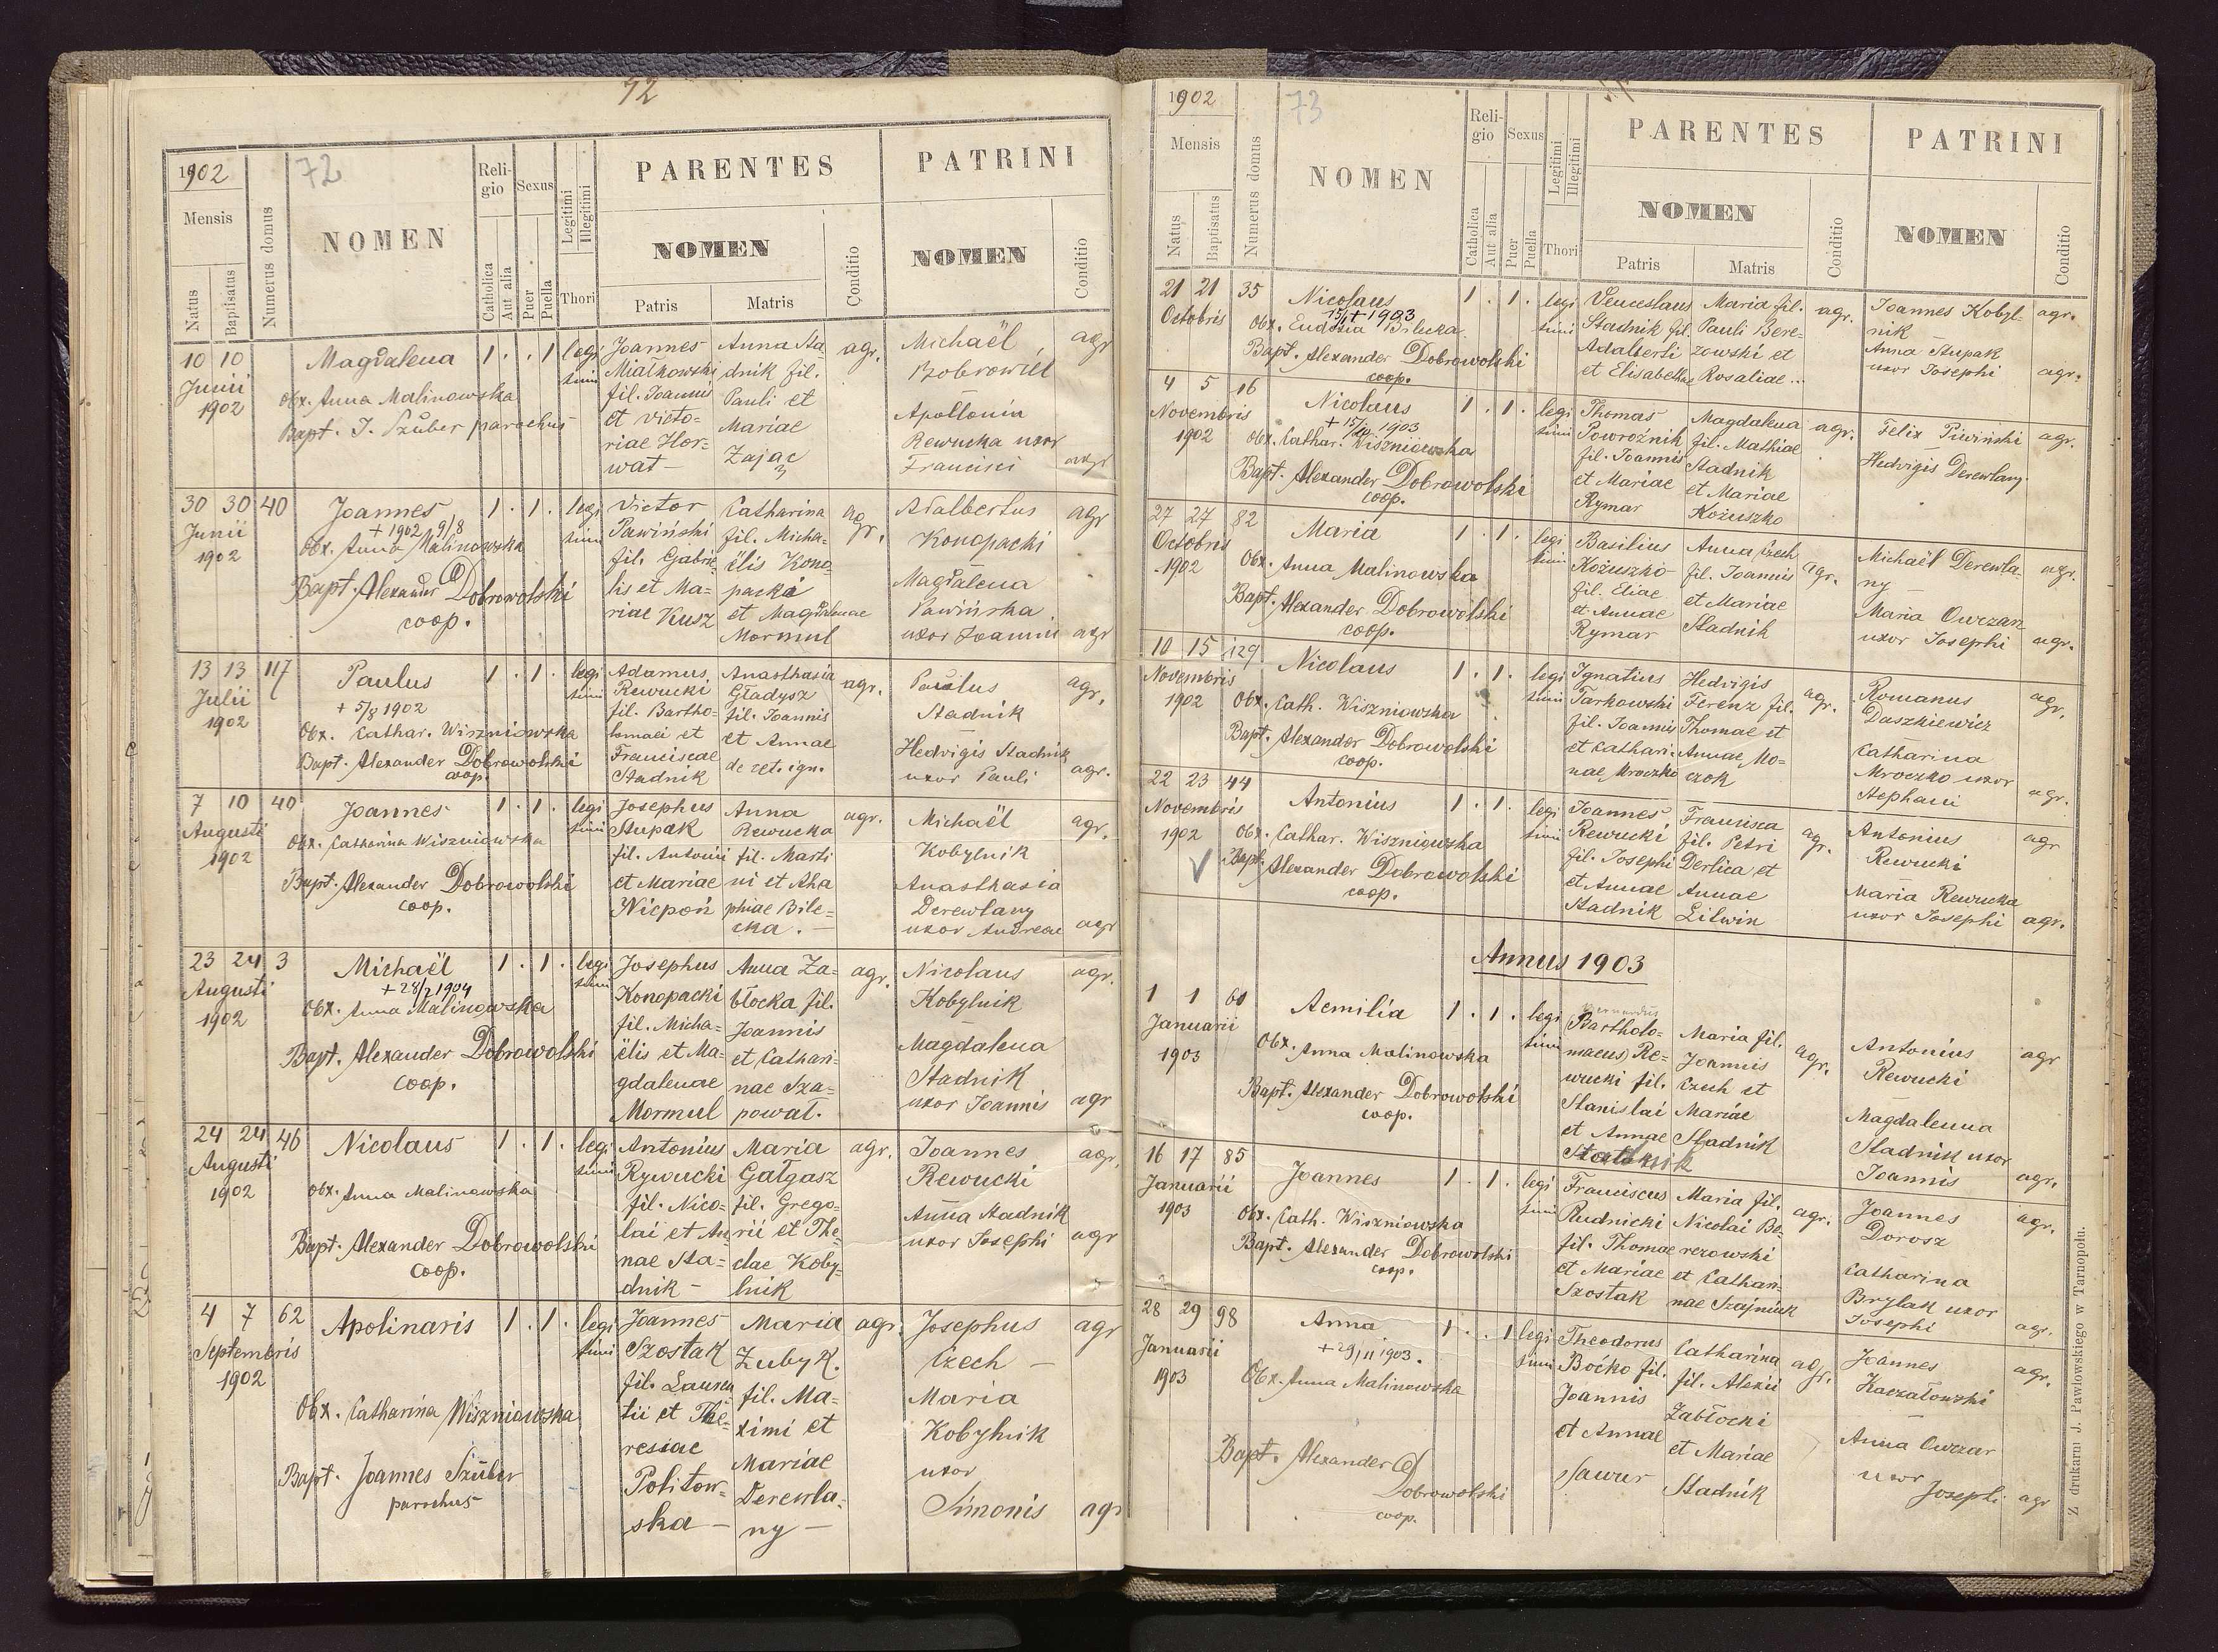 72
1902
72
Mensis
Natus
Baptisatus
Numerus domus
NOMEN
Religio
Catholica
Aut alia
Sexus
Puer
Puella
Legitimi
Illegitimi
Thori
PARENTES
NOMEN
Patris
Matris
Conditio
PATRINI
NOMEN
Conditio
10 10
Junii
1902
Magdalena
Obx. Anna Malinowska
Bapt. J. Szüber parochus
1 . . 1
legi
timi
Joannes
Miałkowski
fil. Joannis
et Victo-
riae Hor-
wat
Anna Sta-
dnik fil.
Pauli et
Mariae
Zając
agr.
Michaël
Bobrowicz
Apollonia
Rewucka uxor
Francisci
agr
agr
30 30 40
Junii
1902
Joannes
+ 1902 9/8
Obx. Anna Malinowska
Bapt. Alexander Dobrowolski
coop.
1 . 1 .
legi
timi
Victor
Pawiński
fil. Gabrie-
lis et Ma-
riae Kusz
Catharina
fil. Micha-
ëlis Kono-
packi
et Magdalenae
Mormul
agr.
Adalbertus
Konopacki
Magdalena
Pawińska
uxor Joannis
agr
agr
13 13 117
Julii
1902
Paulus
+ 5/8 1902
Obx. Cathar. Wiszniowska
Bapt. Alexander Dobrowolski
coop.
1 . 1 .
legi
timi
Adamus
Rewucki
fil. Bartho-
lomaei et
Franciscae
Stadnik
Anasthasia
Gładysz
fil. Joannis
et Annae
de cet. ign.
agr.
Paulus
Stadnik
Hedvigis Stadnik
uxor Pauli
agr.
agr.
7 10 40
Augusti
1902
Joannes
Obx. Catharina Wiszniowska
Bapt. Alexander Dobrowolski
coop.
1 . 1 .
legi
timi
Josephus
Stupak
fil. Antonii
et Mariae
Niepoń
Anna
Rewucka
fil. Marti
ni et Aha
phiae Bile-
cka.
agr.
Michaël
Kobylnik
Anasthasia
Derewlany
uxor Andreae
agr.
agr
23 24 3
Augusti
1902
Michaël
+ 28/2 1904
Obx. Anna Malinowska
Bapt. Alexander Dobrowolski
coop.
1 . 1 .
legi
timi
Josephus
Konopacki
fil. Micha-
ëlis et Ma-
gdalenae
Mormul
Anna Za-
błocka fil.
Joannis
et Cathari-
nae Sza-
pował.
agr.
Nicolaus
Kobylnik
Magdalena
Stadnik
uxor Joannis
agr.
agr
24 24 46
Augusti
1902
Nicolaus
Obx. Anna Malinowska
Bapt. Alexander Dobrowolski
coop.
1 . 1 .
legi
timi
Antonius
Rywucki
fil. Nico-
lai et An-
nae Sta-
dnik
Maria
Gałgasz
fil. Grego-
rii et The-
clae Koby-
lnik
agr.
Joannes
Rewucki
Anna Stadnik
uxor Josephi
agr.
agr
4 7 62
Septembris
1902
Apolinaris
Obx. Catharina Wiszniowska
Bapt. Joannes Szüber
parochus
1 . 1 .
legi
timi
Joannes
Szostak
fil. Lauren
tii et The-
resiae
Politow-
ska
Maria
Zubyk.
fil. Ma-
ximi et
Mariae
Derewla-
ny
agr.
Josephus
Czech
Maria
Kobylnik
uxor
Simonis
agr
agr
1902
73
Mensis
Natus
Baptisatus
Numerus domus
NOMEN
Religio
Catholica
Aut alia
Sexus
Puer
Puella
Legitimi
Illegitimi
Thori
PARENTES
NOMEN
Patris
Matris
Conditio
PATRINI
NOMEN
Conditio
21 21 35
Octobris
Nicolaus
+ 1903
Obx. Eudoxia Bilecka
Bapt. Alexander Dobrowolski
coop.
1 . 1 .
legi
timi
Venceslaus
Stadnik fil.
Adalberti
et Elisabethae
Maria fil.
Pauli Bere-
zowski et
Rosaliae
agr.
Joannes Kobyl-
nik
Anna Stupak
uxor Josephi
agr.
agr.
4 5 16
Novembris
1902
Nicolaus
Obx. Cathar. Wiszniowska
Bapt. Alexander Dobrowolski
coop.
1 . 1 .
legi
timi
Thomas
Powroźnik
fil. Joannis
et Mariae
Rymar
Magdalena
fil. Mathiae
Stadnik
et Mariae
Kożuszko
agr.
Felix Piwiński
Hedvigis Derewlany
agr.
27 27 82
Octobris
1902
Maria
Obx. Anna Malinowska
Bapt. Alexander Dobrowolski
coop.
1 . 1 .
legi
timi
Basilius
Kożuszko
fil. Eliae
et Annae
Rymar
Anna Czech
fil. Joannis
et Mariae
Stadnik
agr.
Michaël Derewla-
ny
Maria Owczar
uxor Josephi
agr.
agr.
10 15 129
Novembris
1902
Nicolaus
Obx. Cath. Wiszniowska
Bapt. Alexander Dobrowolski
coop.
1 . 1 .
legi
timi
Ignatius
Tarkowski
fil. Joannis
et Cathari-
nae Mroczko
Hedvigis
Ferenz fil.
Thomae et
Annae Mo-
czok
agr.
Romanus
Daszkiewicz
Catharina
Mroczko uxor
Stephani
agr.
agr.
22 23 44
Novembris
1902
Antonius
Obx. Cathar. Wiszniowska
Bapt. Alexander Dobrowolski
coop.
1 . 1 .
legi
timi
Joannes
Rewucki
fil. Josephi
et Annae
Stadnik
Francisca
fil. Petri
Derlica et
Annae
Litwin
agr.
Antonius
Rewucki
Maria Rewucka
uxor Josephi
agr
agr.
Annus 1903
1 1 61
Januarii
1903
Aemilia
Obx. Anna Malinowska
Bapt. Alexander Dobrowolski
coop.
1 . 1 .
legi
timi
Bernardus
Bartholo-
maeus Re-
wucki fil.
Stanislai
et Annae
Stadnik
Maria fil.
Joannis
Czech et
Mariae
Stadnik
agr.
Antonius
Rewucki
Magdalenna
Stadnik uxor
Joannis
agr
agr.
16 17 85
Januarii
1903
Joannes
Obx. Cath. Wiszniowska
Bapt. Alexander Dobrowolski
coop.
1 . 1 .
legi
timi
Franciscus
Rudnicki
fil. Thomae
et Mariae
Szostak
Maria fil.
Nicolai Be-
rezowski
et Cathari-
nae Szajniuk
agr.
Joannes
Dorosz
Catharina
Brylak uxor
Josephi
agr.
agr.
28 29 98
Januarii
1903
Anna
+ 29/11 1903.
Obx. Anna Malinowska
Bapt. Alexander
Dobrowolski
coop.
1 . . 1
legi
timi
Theodorus
Boćko fil.
Joannis
et Annae
Sawur
Catharina
fil. Alexii
Zabłocki
et Mariae
Stadnik
agr.
Joannes
Kaczałowski
Anna Owczar
uxor
Josephi
agr.
agr
Z drukarni J. Pawłowskiego w Tarnopolu.